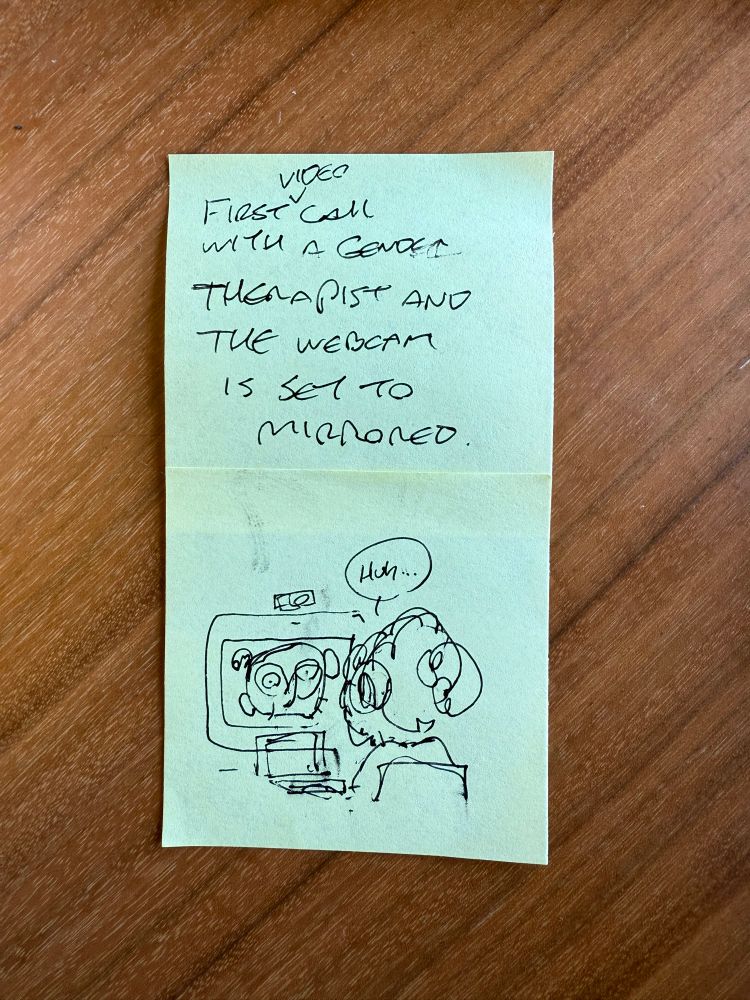 VIDEO
FIRST CALL
WITH A GENDER
THERAPIST AND
THE WEBCAM
IS SET TO
MIRRORED.
HUH...